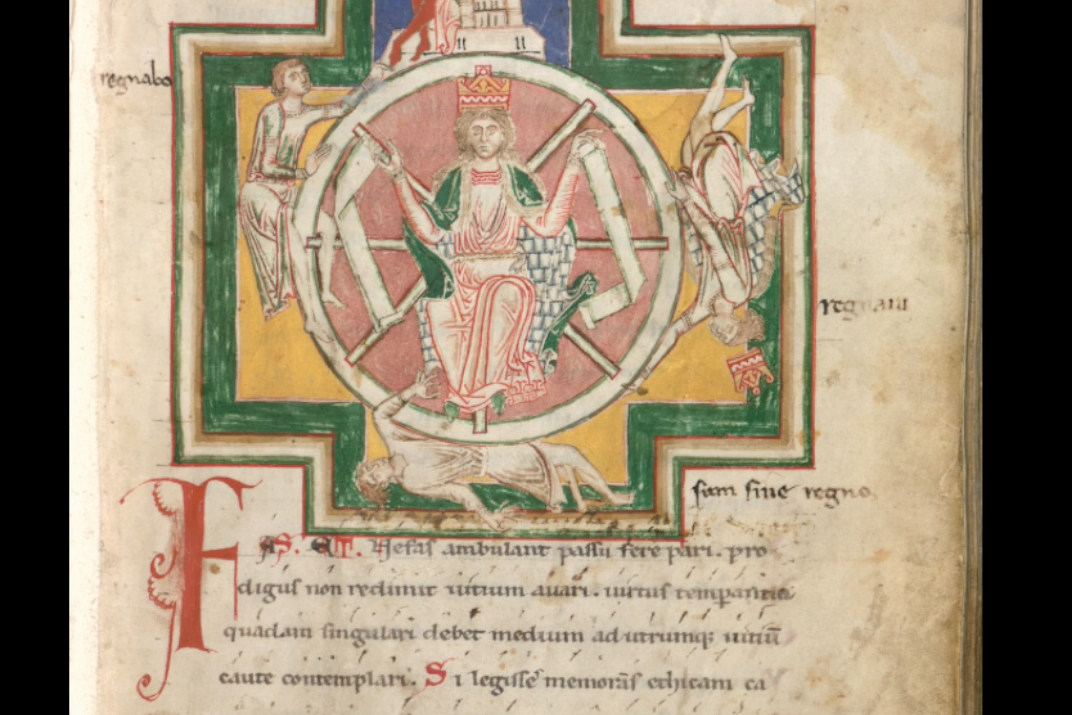 regnabo
regnaui
sum sine regno.
FAS. ET. Nefas ambulant passu fere pari. pro
digus non redimit uitium auari. uirtus temperantia
quadam singulari debet medium ad utrumq; uitiū
caute contemplari. Si legisse memoras ethicam ca